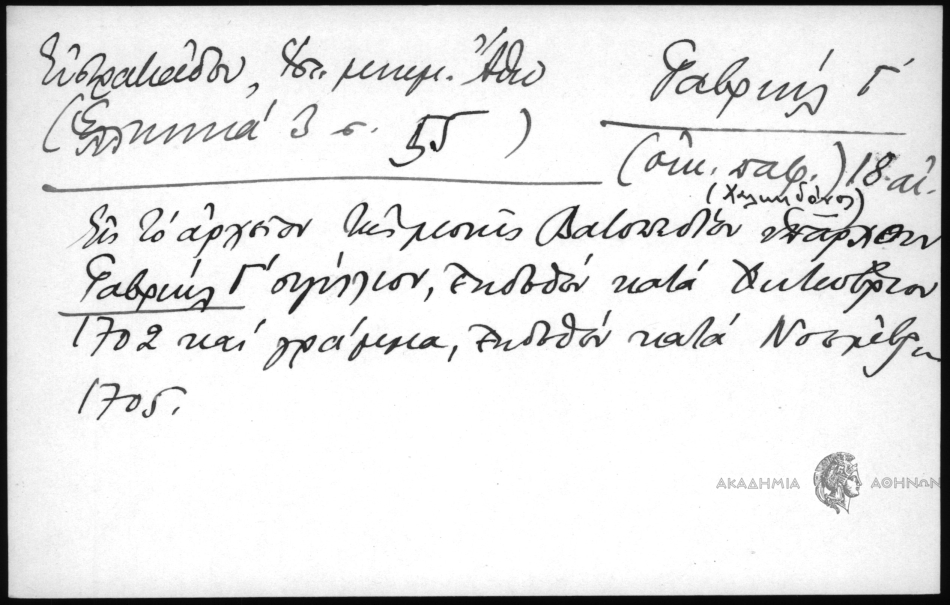 Εὐστρατιάδου, Ἱστ. μνημ. Ἄθω
(Ἑλληνικά 3 σ. 55)
Γαβριήλ Γ΄
(οἰκ. πατρ.) 18 αἰ.
(Χαλκηδόνος)
Εἰς τό ἀρχεῖον τῆς μονῆς Βατοπεδίου ὑπάρχουν
Γαβριήλ Γ΄ σιγίλλιον, ἐκδοθέν κατά Ὀκτώβριον
1702 καί γράμμα, ἐκδοθέν κατά Νοέμβριον
1705.
ΑΚΑΔΗΜΙΑ ΑΘΗΝΩΝ